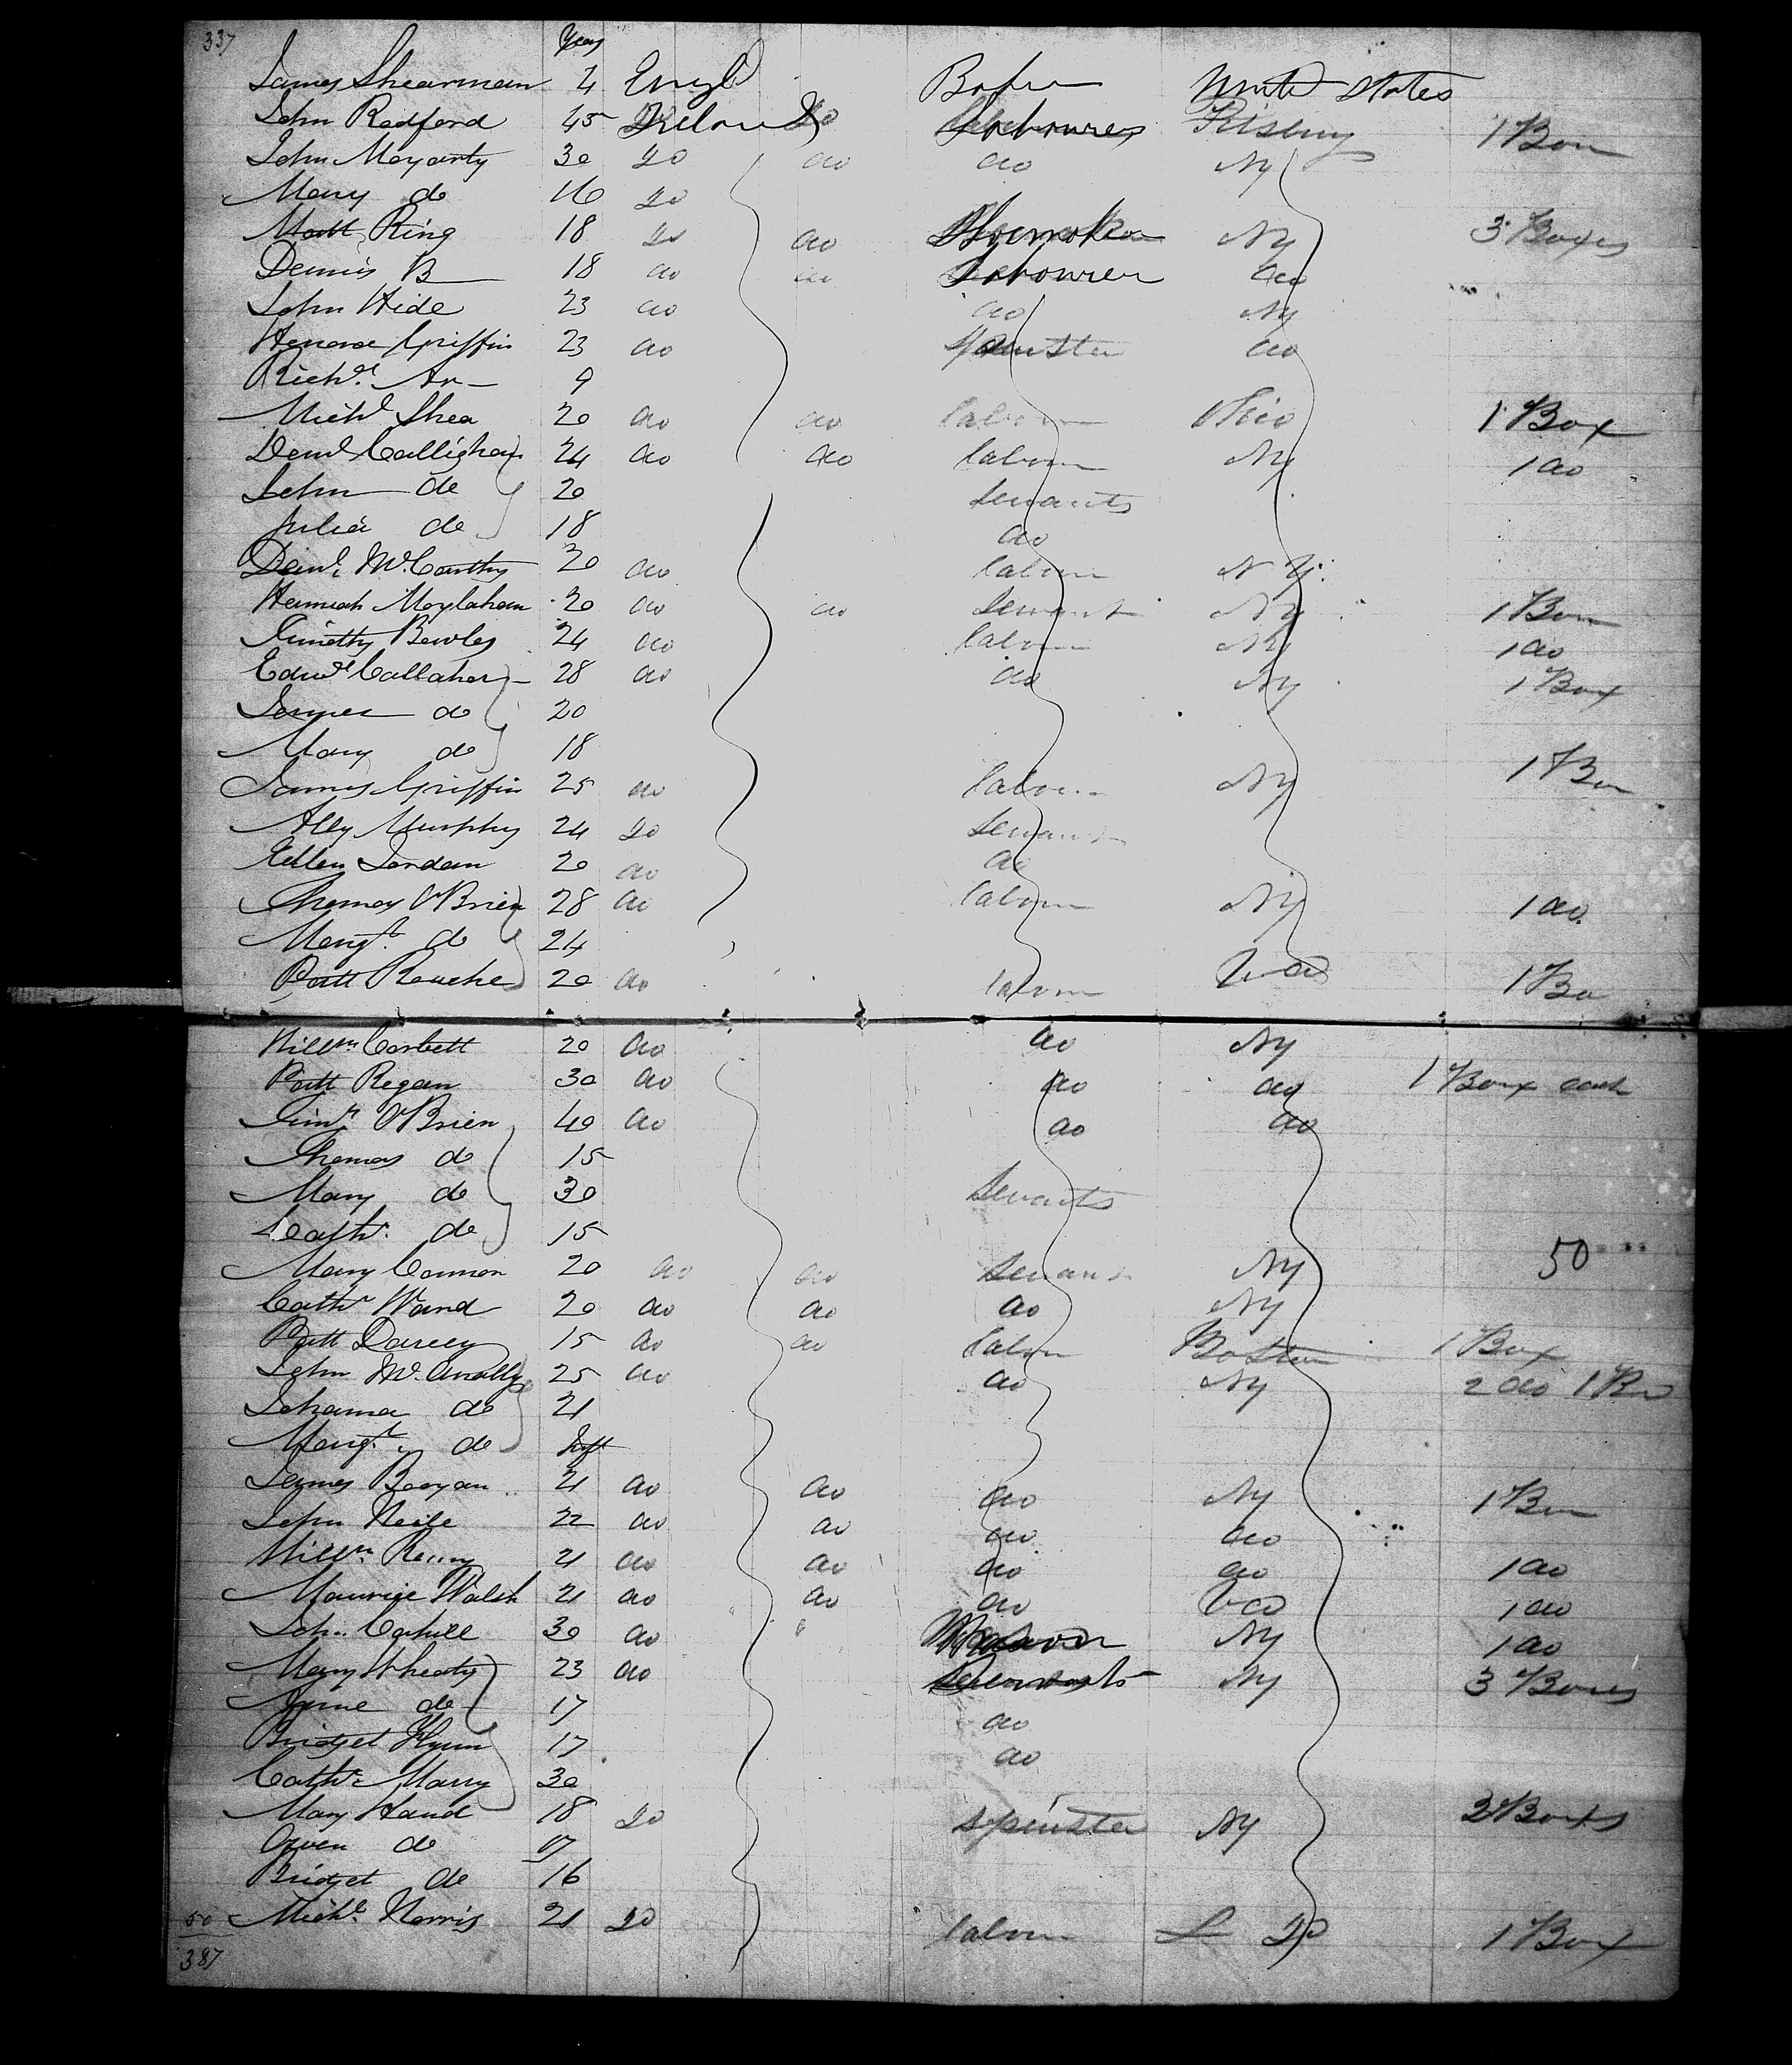 337 Years
James Shearman 21 Engl Baker United States
John Redford 45 Ireland do Labourer Pitsburg 1 Box
John Moyarty 30 do do do Ny
Mary do 16 do
Matt Ring 18 do do Shoemaker Ny 3 Boxes
Dennis B 18 do do Labourer do
John Hide 23 do do Ny
Henora Griffin 23 do Spinster do
Richd. 9
Michl Shea 20 do do labour Ohio 1 Box
Denl Callighan 24 do do labour Ny 1 do
John do 20 servants
Julia do 18 do
Danl. McCarthy 20 do labour N Y.
Hannah Moylahan 20 do do servant Ny 1 Box
Timothy Bowles 24 do labour Ny 1 do
Edwd Callahan 28 do do Ny 1 Box
do 20
Mary do 18
James Griffin 25 do labour Ny 1 Box
Ally Murphy 24 do servant
Ellen Jordan 20 do do
Thomas O'Brien 28 do labour Ny 1 do
Margt. do 24
Patt Rouche 20 do labour 1 Box
Willm Corbett 20 do do Ny
Patt Regan 30 do do do 1 Box each
Timy O'Brien 40 do do do
Thomas do 15
Mary do 30 Servants
Cathr. do 15
50
Mary Connon 20 do do servant Ny
Cathr Ward 20 do do do Ny
Patt Darcey 15 do do labour Boston 1 Box
John McAnally 25 do do Ny 2 do 1 Box
Johanna do 21
Margt. do Inft
James Booyan 21 do do do Ny 1 Box
John Neile 22 do do do do
Willm. 21 do do do do 1 do
Maurice Walsh 21 do do do do 1 do
John Cahill 30 do Mason Ny 1 do
Mary Wheaty 23 do Servants Ny 3 Boxes
do 17 do
Bridget Flynn 17 do
Cathr. Marry 30
Mary Hand 18 do spinster Ny 2 Boxes
Owen do 17
Bridget do 16
50 Michl. Norris 21 do labour do 1 Box
387